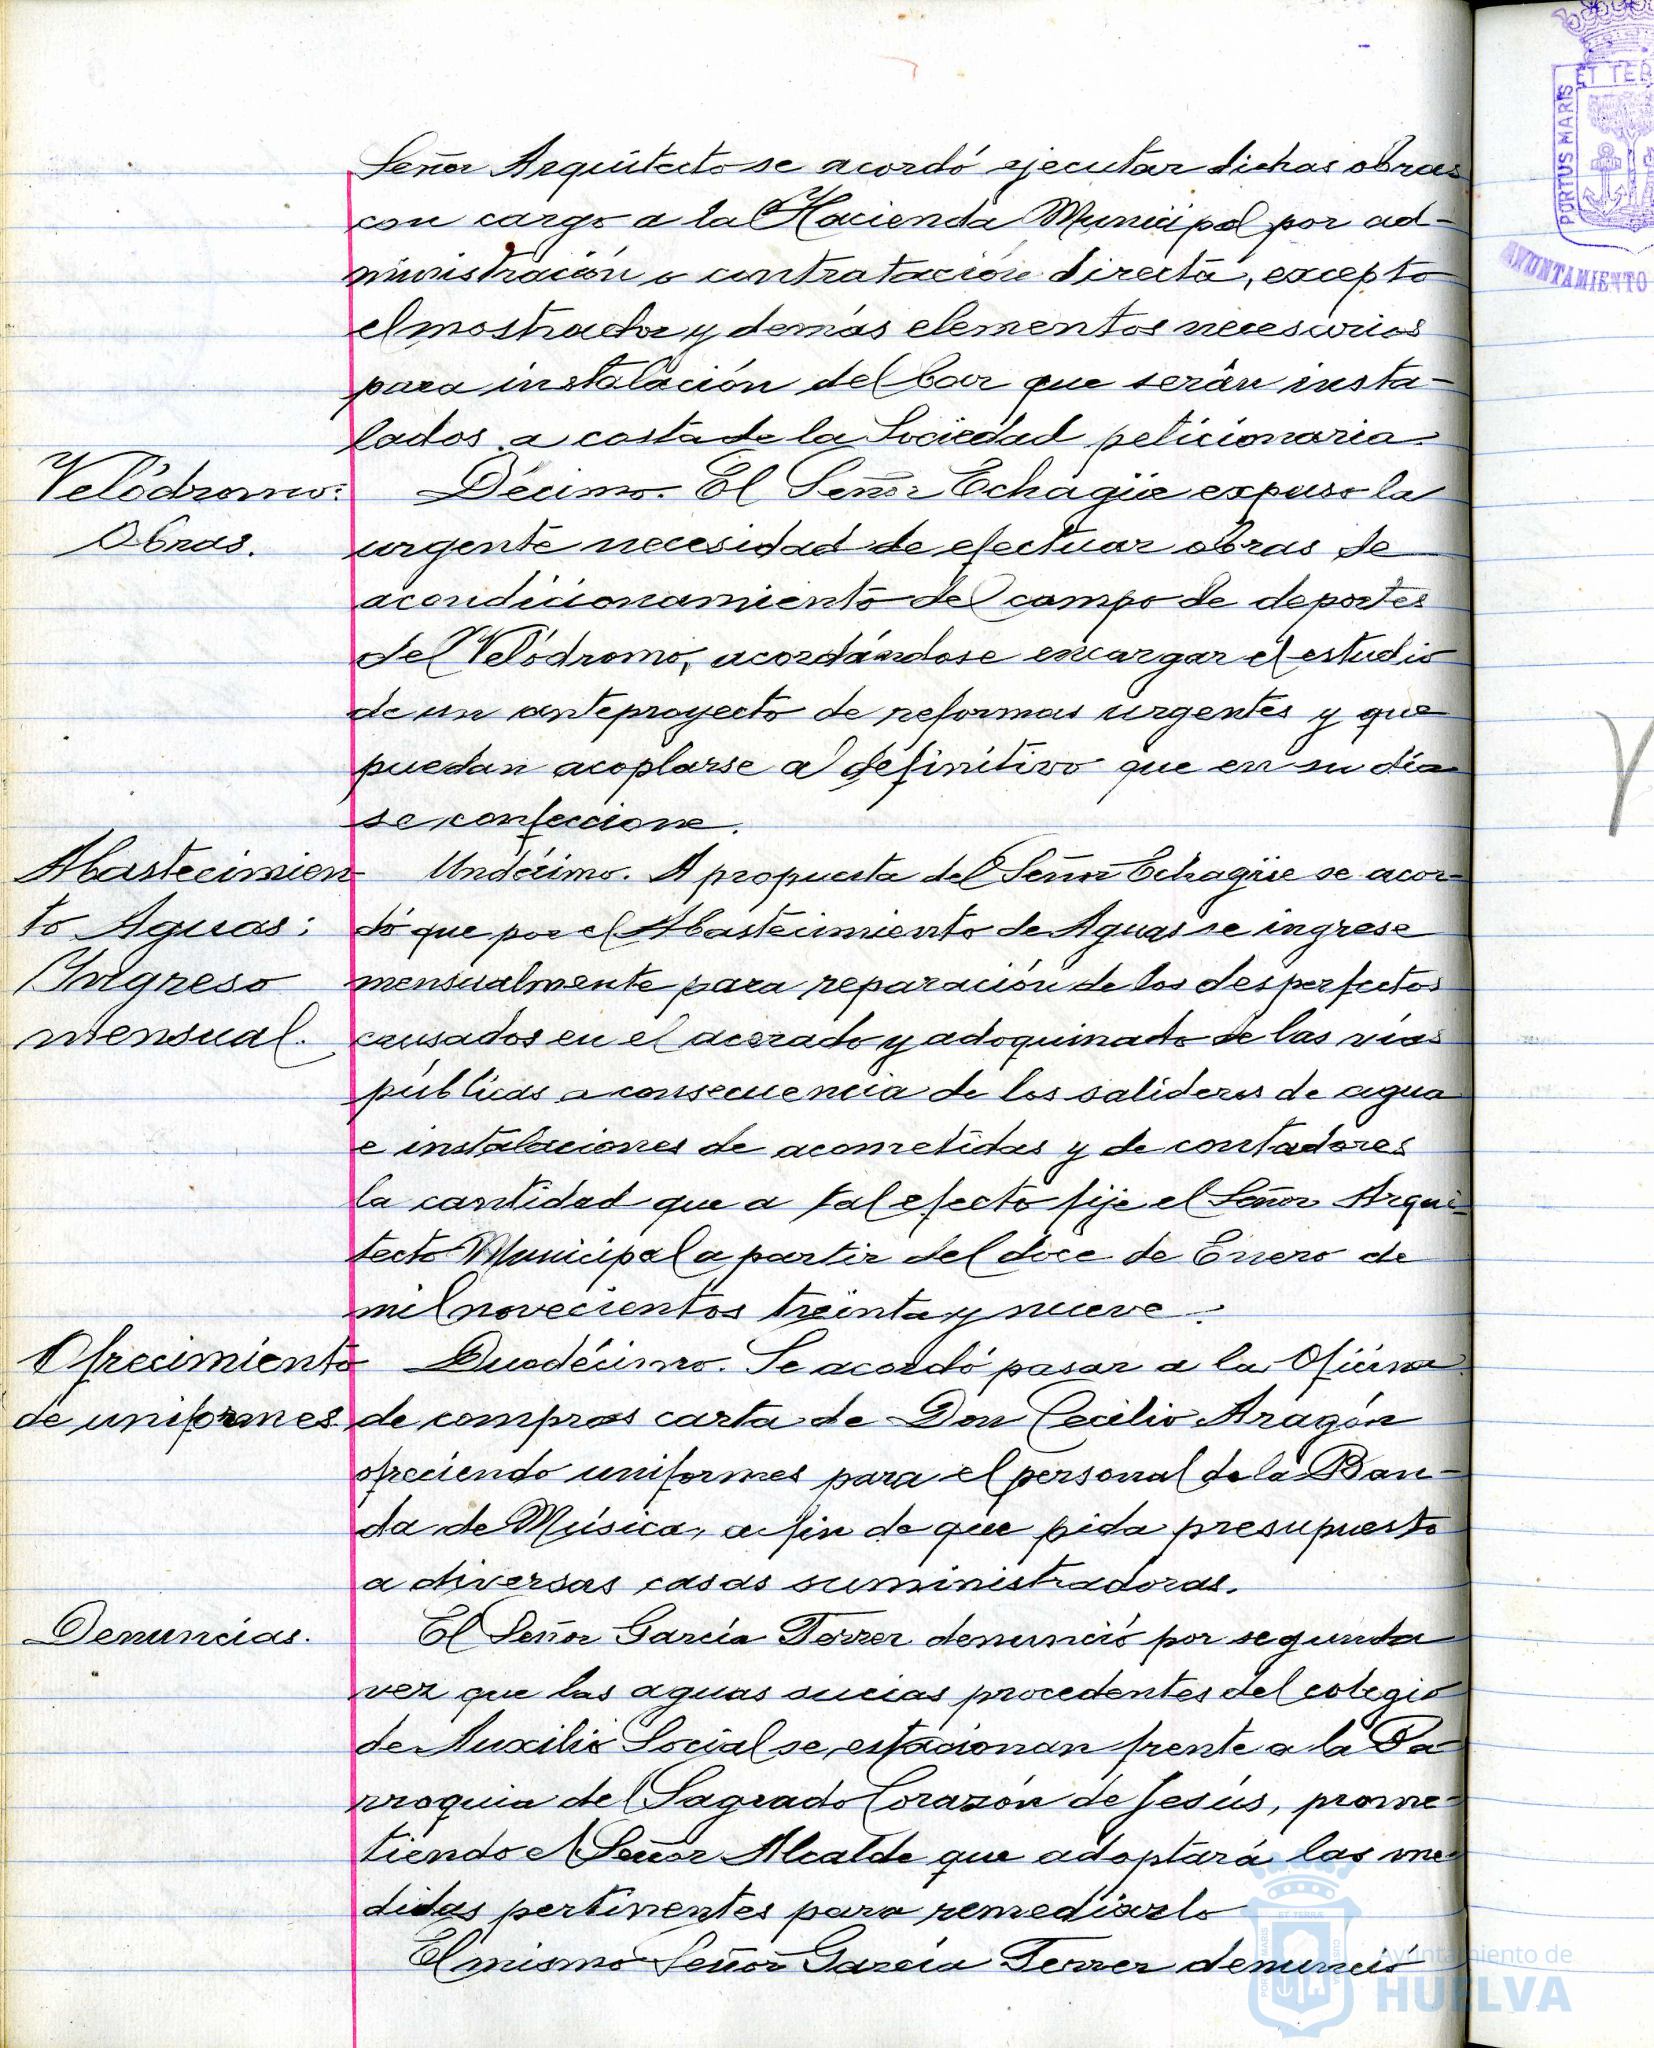 Señor Arquitecto se acordó ejecutar dichas obras
con cargo a la Hacienda Municipal por ad-
ministración o contratación directa, excepto
el mostrador y demás elementos necesarios
para instalación del bar que serán insta-
lados a costa de la Sociedad peticionaria.
Velódromo:
Obras.
Décimo. El Señor Echagüe expuso la
urgente necesidad de efectuar obras de
acondicionamiento del campo de deportes
del Velódromo, acordándose encargar el estudio
de un anteproyecto de reformas urgentes y que
puedan acoplarse al definitivo que en su día
se confeccione.
Abastecimien
to Aguas:
Ingreso
mensual.
Undécimo. A propuesta del Señor Echagüe se acor-
dó que por el Abastecimiento de Aguas se ingrese
mensualmente para reparación de los desperfectos
causados en el acerado y adoquinado de las vías
públicas a consecuencia de los salideros de agua
e instalaciones de acometidas y de contadores
la cantidad que a tal efecto fije el Señor Arqui-
tecto Municipal a partir del doce de Enero de
mil novecientos treinta y nueve.
Ofrecimiento
de uniformes.
Duodécimo. Se acordó pasar a la Oficina
de compras carta de Don Cecilio Aragón
ofreciendo uniformes para el personal de la Ban-
da de Música, a fin de que pida presupuesto
a diversas casas suministradoras.
Denuncias.
El Señor García Terrer denunció por segunda
vez que las aguas sucias procedentes del colegio
de Auxilio Social se estacionan frente a la Pa-
rroquia del Sagrado Corazón de Jesús, prome-
tiendo el Señor Alcalde que adoptará las me-
didas pertinentes para remediarlo
El mismo Señor García Terrer denunció
PORTUS MARIS ET TER
AYUNTAMIENTO
Ayuntamiento de
HUELVA